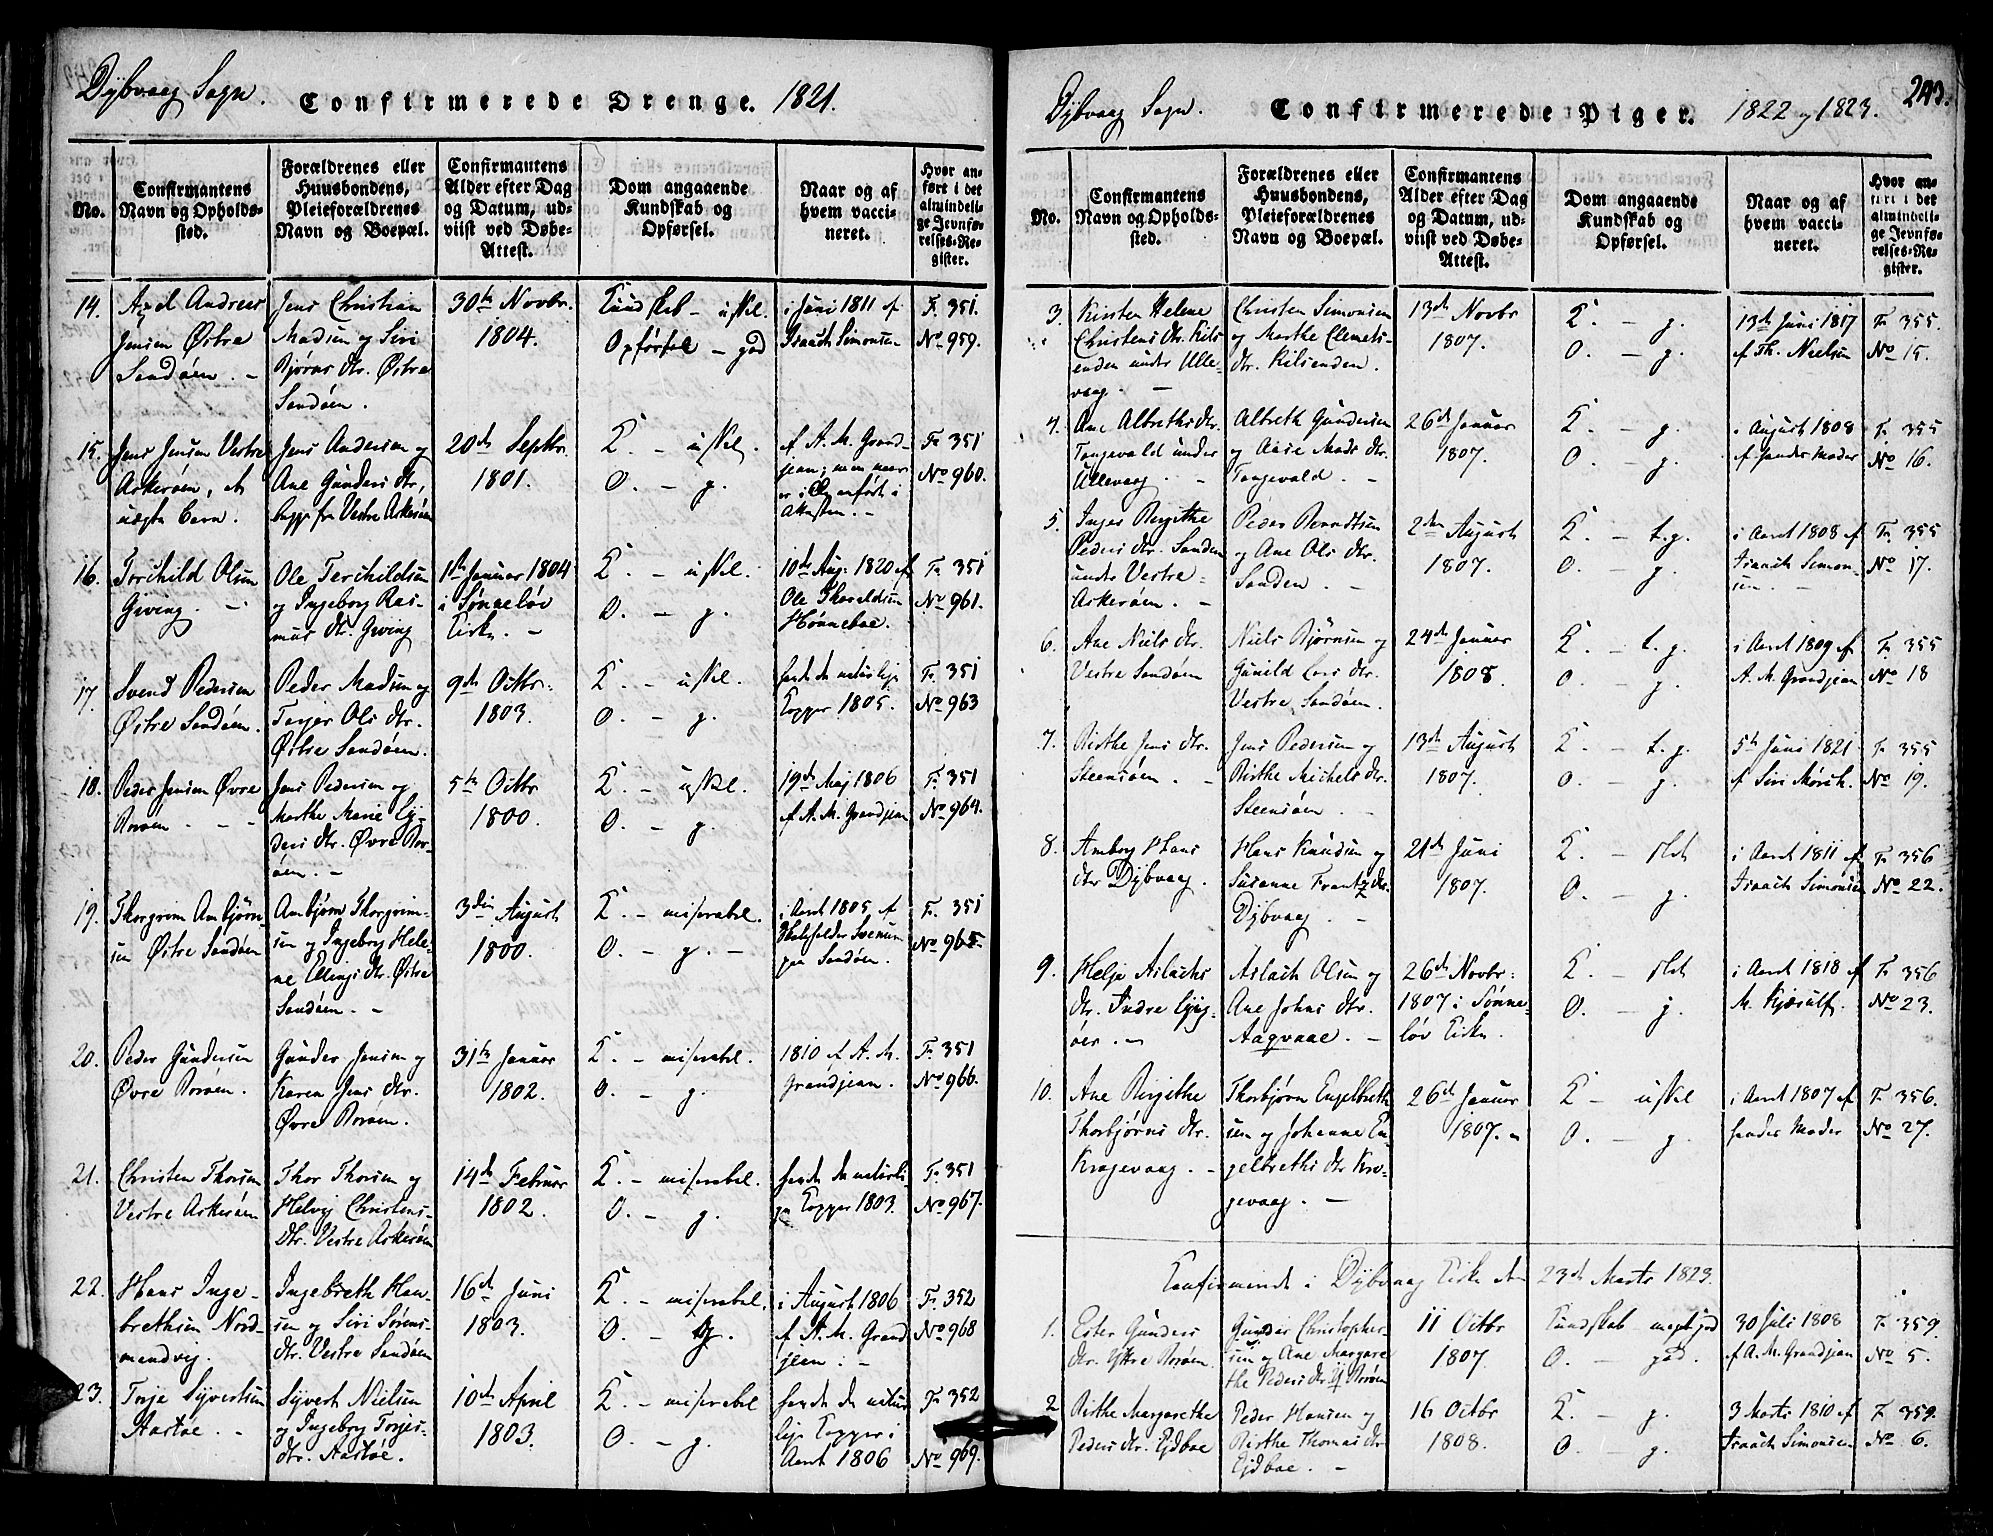 Dÿbvaag Sogn. Confirmerede Drenge. 1821.
No.
Confirmantens
Navn og Opholds-
sted.
Forældrenes eller
Huusbondens,
Pleieforældrenes
Navn og Boepæl.
Confirmantens
Alder efter Dag
og Datum, ud-
viist ved Døbe-
Attest.
Dom angaaende
Kundskab og
Opførsel.
Naar og af
hvem vacci-
neret.
Hvor an-
ført i det
almindeli-
ge Jevnfø-
relses-Re-
gister.
14.
Axel Andreas
Jensen Østre
Sandøen. -
Jens Christian
Madsen og Siri
Bjørns dtr. Østre
Sandøen.
30te Novbr.
1804.
Kundskab - uskel.
Opførsel - god
i Juni 1811 af
Isaach Simonsen
F. 351.
No 959.
15.
Jens Jensen Vestre
Askerøen, et
uægte Barn.
Jens Andersen og
Ane Gunders dtr,
begge fra Vestre Askerøen
20de Septbr.
1801.
K. - uskel.
O. - g.
af A. M. Grand-
jean; men
Attesten. -
F. 351
No 960.
16.
Terchild Olsen
Giving. -
Ole Terchildsen
og Ingeborg Ras-
mus dtr. Giving
1ste Januar 1804
i Sønneløv
Kirke. -
K. - uskel.
O. - g.
10de Aug: 1820 af
Ole Thoraldsen
Hønneboe.
F. 351
No 961.
17.
Svend Pedersen
Østre Sandøen.
Peder Madsen og
Terjer Ols dtr.
Østre Sandøen.
9de Octbr.
1803.
K. - uskel.
O. - g.
havde de naturlige
Kopper 1805.
F. 351
No 963
18.
Peder Jensen Øvre
Borøen. - -
Jens Pedersen og
Marthe Marie Ey-
ders dtr. Øvre Bor-
øen. -
5te Octbr
1800.
K. - uskel.
O. - g.
19de Maj 1806
af A. M. Grandjean
F. 351
No 964.
19.
Thorgrim Ambjørn-
sen Østre Sandøen
Ambjørn Thorgrim-
sen og Ingeborg Hele-
ne Ellings dtr. Østre
Sandøen. -
3die August
1800.
K. - miserabel.
O. - g. -
i Aaret 1805 af
Svensen
paa Sandøen.
F. 351
No 965.
20.
Peder Gundersen
Øvre Borøen.
Gunder Jensen og
Karen Jens dtr.
Øvre Borøen.
31te Januar
1802.
K. - miserabel.
O. - g.
1810 af A. M.
Grandjean.
F. 351
No 966.
21.
Christen Thorsen
Vestre Askerøen
Thor Thorsen og
Helvig Christens-
dtr. Vestre Askerøen
14de Februar
1802.
K. - miserabel.
O. - g.
havde de naturli-
ge Kopper 1803.
F. 351
No 967.
22.
Hans Inge-
brethsen Nord-
mandvig.
Ingebreth Han-
sen og Siri Sørens-
dtr. Vestre Sandøen
16de Juni
1803.
K. - miserabel.
O. - g.
i August 1806
af A. M. Grand
jean. -
F. 352
No 968
23.
Terje Syvertsen
Aastøe. -
Syvert Nielsen
og Ingeborg Terjes-
dtr. Aastøe.
10de April
1803.
K. - miserabel
O. - g.
havde de natur
lige Kopper i
Aaret 1806
F. 352
No 969.
Dÿbvaag Sogn. Confirmerede Piger. 1822 og 1823. 243.
No.
Confirmantens
Navn og Opholds-
sted.
Forældrenes eller
Huusbondens,
Pleieforældrenes
Navn og Boepæl.
Confirmantens
Alder efter Dag
og Datum, ud-
viist ved Døbe-
Attest.
Dom angaaende
Kundskab og
Opførsel.
Naar og af
hvem vacci-
neret.
Hvor an-
ført i det
almindeli-
ge Jevnfø-
relses-Re-
gister.
3.
Kirsten Helene
Christens dtr. Kils-
enden under Ulle-
vaag. -
Christen Simonsen
og Marthe Clemets-
dtr. Kilsenden.
13de Novbr
1807.
K. - g.
O. - g.
13de Juni 1817
af Th. Nielsen
F. 355.
No 15.
4.
Ane Albreths dtr.
Tangevald under
Ullevaag. -
Albreth Gundersen
og Aase Mads dtr.
Tangevald. -
26de Januar
1807.
K. - g.
O. - g.
i August 1808
af Sander Moder
F. 355
No 16.
5.
Inger Birgithe
Peders dtr. Sanden
under Vestre-
Askerøen. -
Peder Berndtsen
og Ane Ols dtr.
Sanden. -
2den August
1807.
K. - t. g.
O. - g.
i Aaret 1808 af
Isaach Simon-
sen. -
F. 355
No 17.
6.
Ane Niels dtr.
Vestre Sandøen
Niels Bjørnsen og
Gunild Lars dtr.
Vestre Sandøen.
24de Januar
1808.
K. - t. g.
O. - g.
i Aaret 1809 af
A. M. Grandjean
F. 355
No 18
7.
Birthe Jens dtr.
Steensøen. -
Jens Pedersen og
Birthe Michels dtr.
Steensøen. -
13de August
1807.
K. - t. g.
O. - g.
5te Juni 1821
af Siri Mørch.
F. 355
No 19.
8.
Amborg Hans
dtr Dÿbvaag.
Hans Knudsen og
Susanne Frantz dtr.
Dÿbvaag. -
21de Juni
1807.
K. - slet
O. - g.
i Aaret 1811 af
Isaach Simonsen
F. 356
No 22.
9.
Helje Aslachs
dtr. Indre
øer. -
Aslach Olsen og
Ane Johns dtr.
Aaqvaae. -
26de Novbr:
1807 i Sønne-
løv Kirke.
K. - slet
O. - g.
i Aaret 1818 af
M. Kjærulf.
F. 356
No 23.
10.
Ane Birgithe
Thorbjørns dtr.
Kragevaag. -
Thorbjørn Engelbreth
sen og Johanne En-
gelbreths dtr Kra-
gevaag. -
26de Januar
1807. -
K - uskel
O. - g.
i Aaret 1807 af
Sander Moder
F. 356.
No 27.
Confirmerede i Dÿbvaag Kirke den 23de Marts 1823.
1.
Ester Gunders
dtr. Ytre Borøen.
Gunder Christopher-
sen og Ane Margare
the Peders dtr Y. Borøen
11 Octbr
1807.
Kundskab meget god
O. - god.
30 Juli 1808
af A. M. Grandjean
F. 359.
No 5.
2
Birthe Margarethe
Peders dtr. Ejdboe
Peder Hansen og
Birthe Thomas dtr
Ejdboe. -
16 Octbr
1808.
K. - g.
O. - g.
3 Marts 1810 af
Isaach Simonsen
F. 359.
No 6.